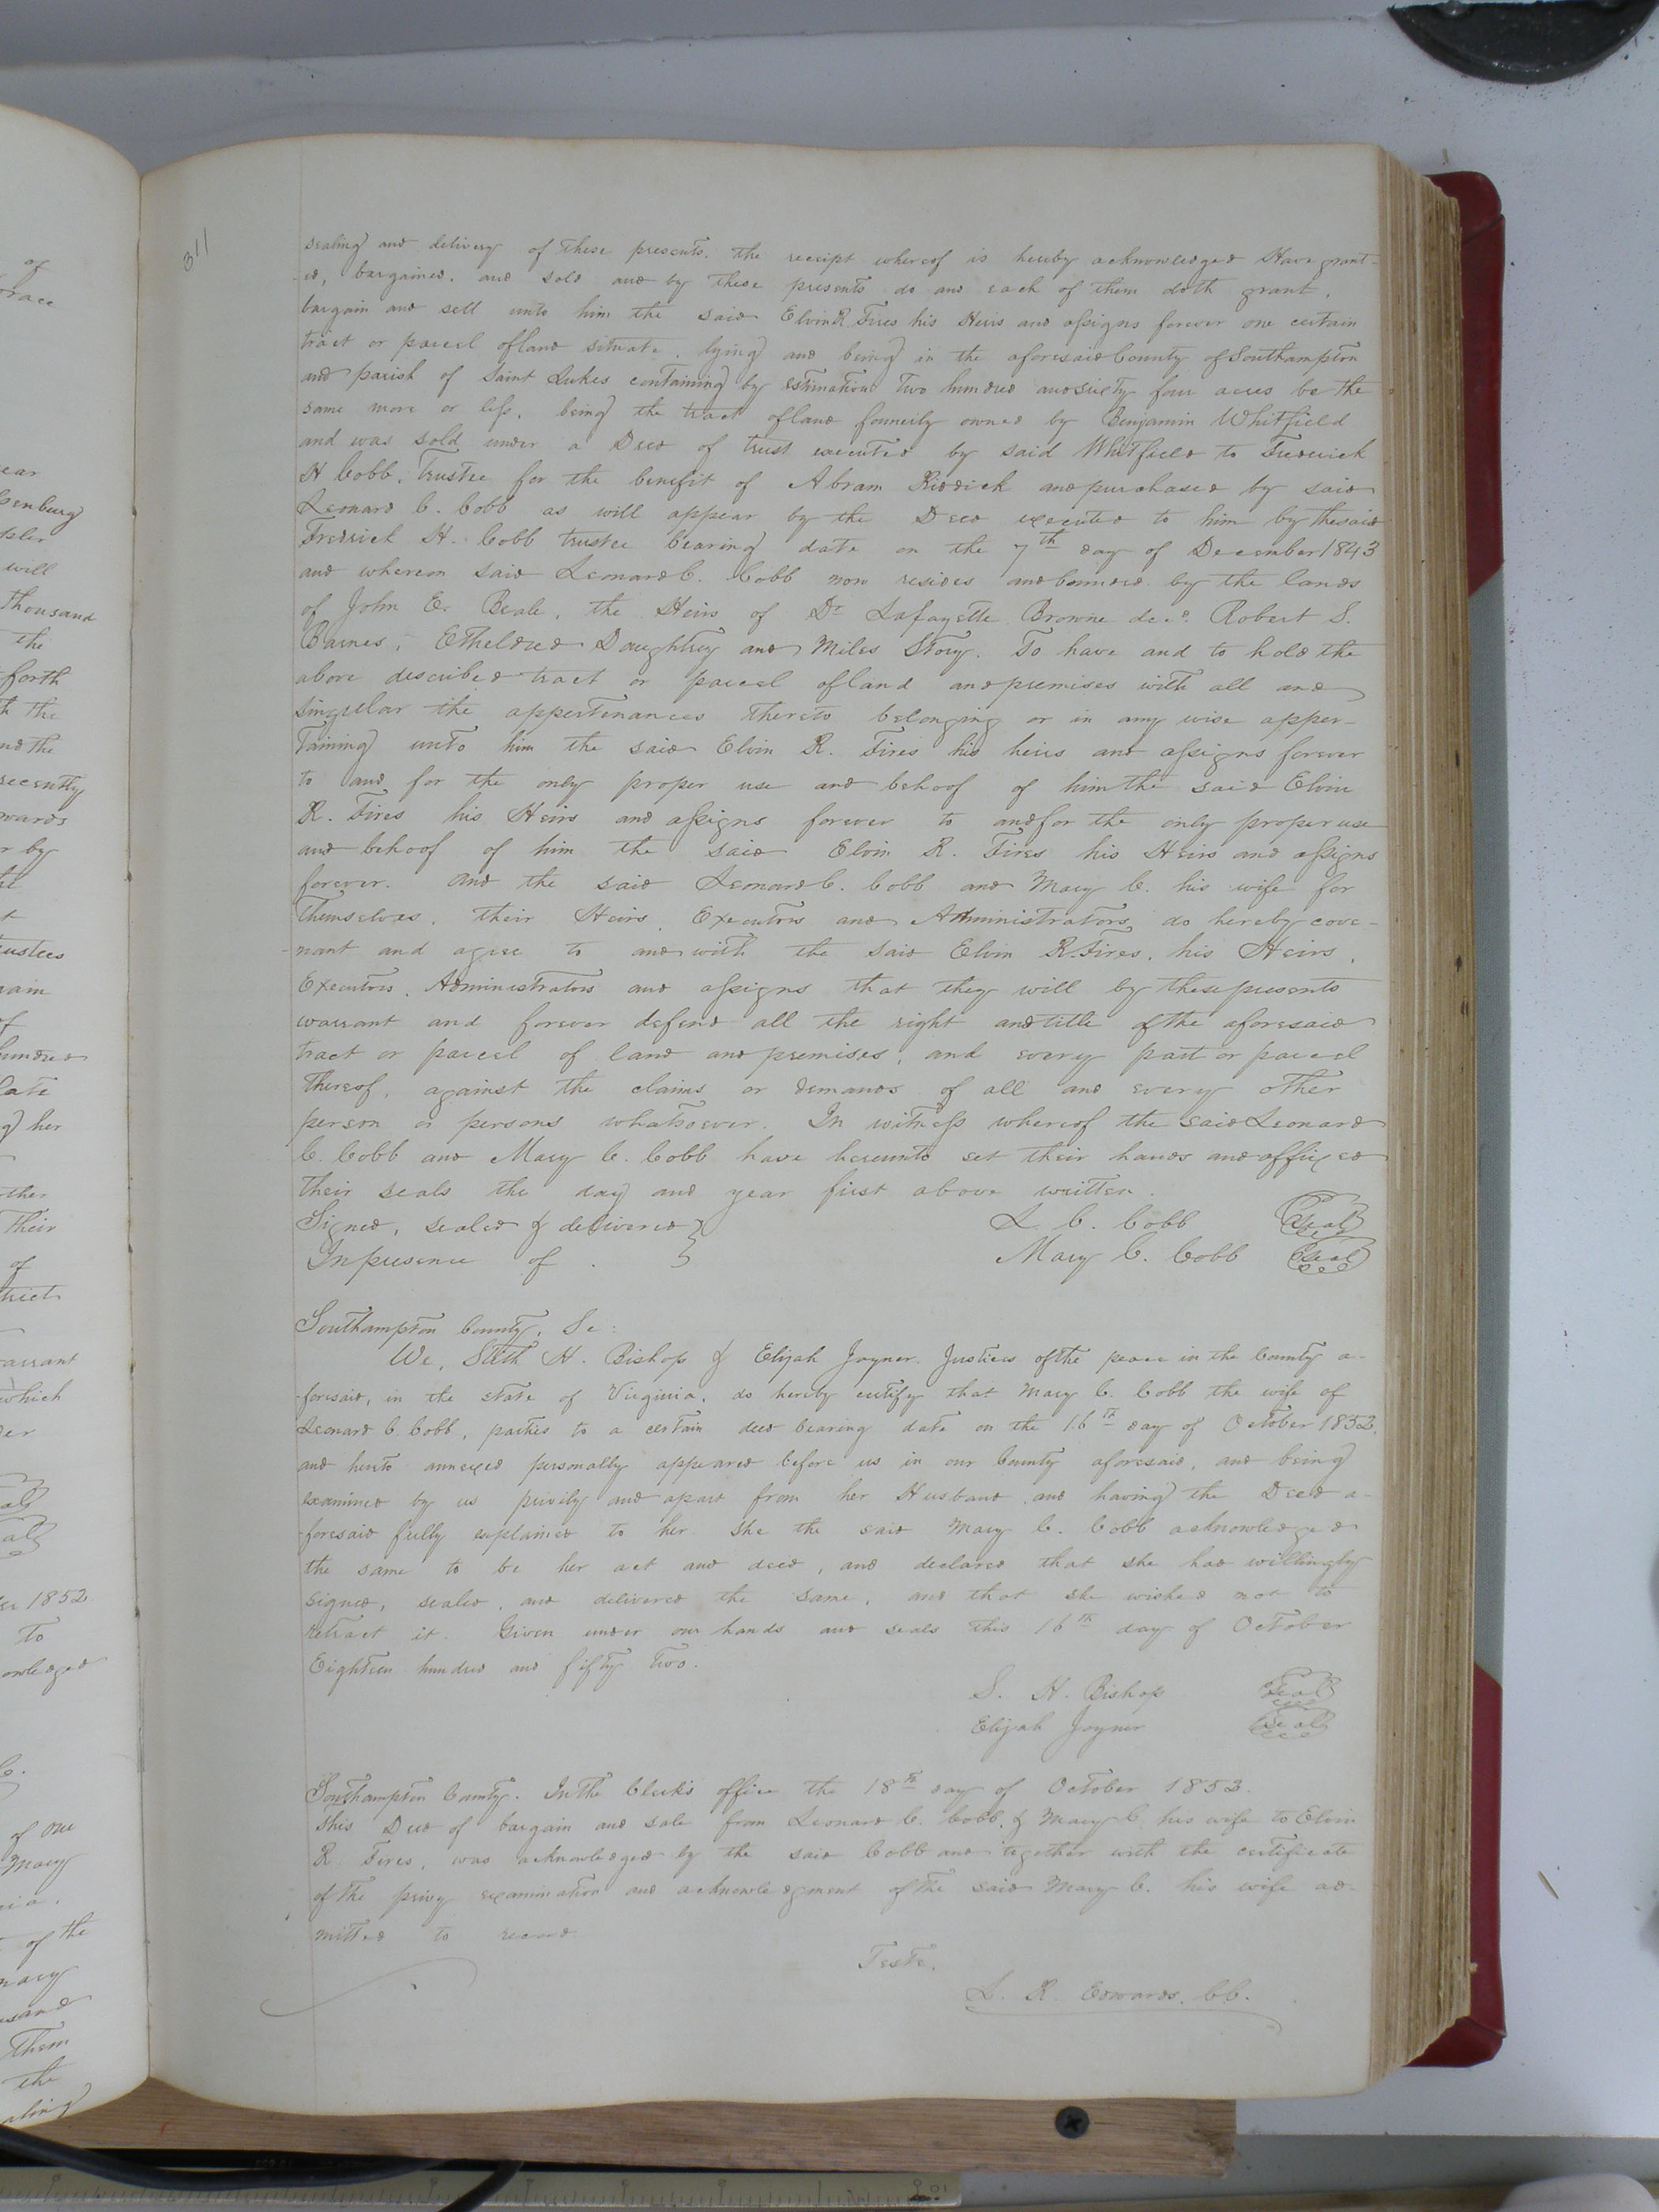 311
sealing and delivery of these presents. the receipt whereof is hereby acknowledged Have grant-
-ed, bargained. and sold and by these presents do and each of them doth grant,
bargain and sell unto him the said Elvin R. Fires his Heirs and assigns forever one certain
tract or parcel of land situate, lying and being in the aforesaid County of Southampton
and parish of Saint Lukes containing by estimation two hundred and sixty four acres be the
same more or less. being the tract of land formerly owned by Benjamin Whitfield
and was sold under a Deed of trust executed by said Whitfield to Frederick
H Cobb, trustee for the benefit of Abram Riddick and purchased by said
Leonard C. Cobb as will appear by the Deed executed to him by the said
Fredrick H. Cobb trustee bearing date on the 7th day of December 1843
and whereon said Leonard C. Cobb now resides and bounded by the lands
of John E. Beale, the Heirs of Dr Lafayette Browne decd. Robert S.
Barnes, Etheldred Daughtrey and Miles Story. To have and to hold the
above described tract or parcel of land and premises with all and
singular the appertenances thereto belonging or in any wise apper-
taining unto him the said Elvin R. Fires his heirs and assigns forever
to and for the only proper use and behoof of him the said Elvin
R. Fires his Heirs and assigns forever to and for the only proper use
and behoof of him the said Elvin R. Fires his Heirs and assigns
forever. And the said Leonard C. Cobb and Mary C. his wife for
themselves, their Heirs, Executors and Administrators, do hereby cove-
-nant and agree to and with the said Elvin R. Fires, his Heirs,
Executors, Administrators and assigns that they will by these presents
warrant and forever defend all the right and title of the aforesaid
tract or parcel of land and premises, and every part or parcel
thereof, against the claims or demands of all and every other
person or persons whatsoever. In witness whereof the said Leonard
C. Cobb and Mary C. Cobb have hereunto set their hands and affixed
their seals the day and year first above written.
Signed, sealed & delivered } L C. Cobb Seal
In presence of . } Mary C. Cobb Seal
Southampton County, Sc:
We, Sleth H. Bishop & Elijah Joyner. Justices of the peace in the County a-
-foresaid, in the state of Virginia, do hereby certify that Mary C. Cobb the wife of
Leonard C Cobb, parties to a certain deed bearing date on the 16th day of October 1852,
and hereto annexed personally appeared before us in our County aforesaid, and being
examined by us privily and apart from her Husband and having the Deed a-
-foresaid fully explained to her she the said Mary C. Cobb acknowledged
the same to be her act and deed, and declared that she had willingly
signed, sealed, and delivered the same, and that she wished not to
retract it. Given under our hands and seals this 16th day of October
Eighteen hundred and fifty two.
S. H. Bishop Seal
Elijah Joyner Seal
Southampton County. In the Clerk's office the 18th day of October 1852.
This Deed of bargain and sale from Leonard C. Cobb, & Mary C. his wife to Elvin
R Fires, was acknowledged by the said Cobb and together with the certificate
of the privy examination and acknowledgment of the said Mary C. his wife ad-
mitted to record
Teste,
L. R. Edwards, CC.